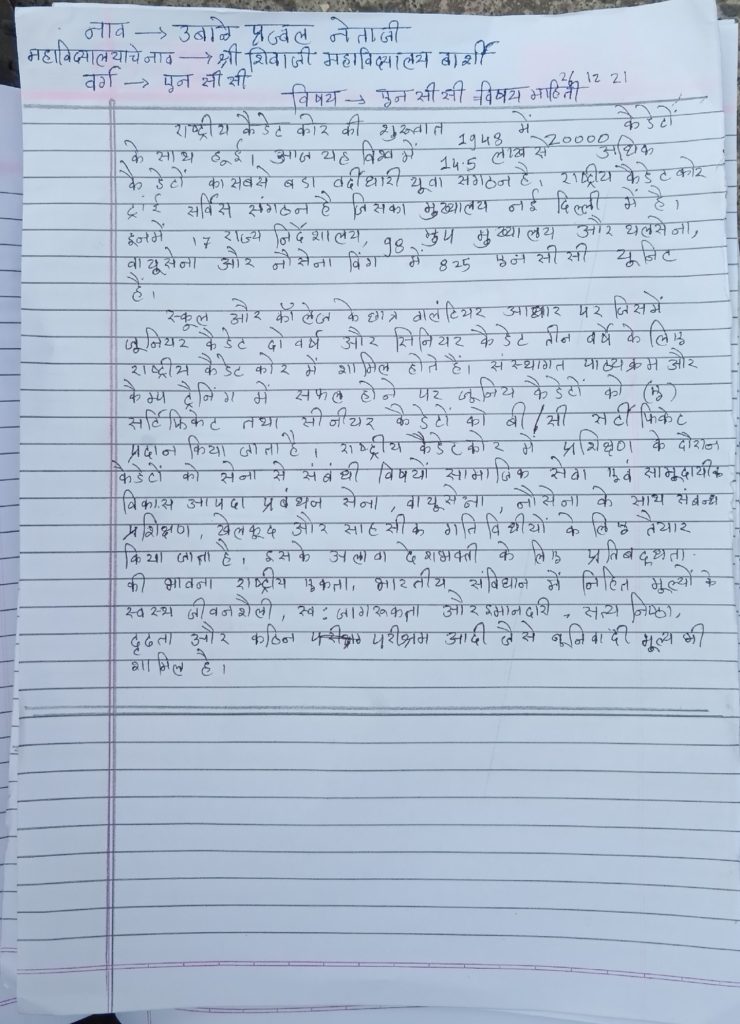 नाव → उबाळे प्रज्वल नेताजी
महाविद्यालयाचे नाव → श्री शिवाजी महाविद्यालय बार्शी
वर्ग → एन सी सी
26 12 21
विषय → एन सी सी विषय माहिती
राष्ट्रीय कैडेट कोर की शुरुवात 1948 में 20000 कैडेटों
के साथ हूई। आज यह विश्व में 14.5 लाख से अधिक
कैडेटों का सबसे बडा वर्दीधारी यूवा संगठन है, राष्ट्रीय कैडेट कोर
ट्राई सर्विस संगठन है जिसका मुख्यालय नई दिल्ली में है।
इनमें 17 राज्य निर्देशालय, 98 ग्रुप मुख्यालय और थलसेना,
वायूसेना और नौसेना विंग में 825 एन सी सी यूनिट
हैं।
स्कूल और कॉलेज के छात्र वालंटियर आधार पर जिसमें
जूनियर कैडेट दो वर्ष और सिनियर कैडेट तीन वर्षे के लिए
राष्ट्रीय कैडेट कोर में शामिल होते हैं। संस्थागत पाठ्यक्रम और
कैम्प ट्रैनिंग में सफल होने पर जूनिय कैडेटों को (ए)
सर्टिफिकेट तथा सीनीयर कैडेटों को बी/सी सर्टीफिकेट
प्रदान किया जाता है। राष्ट्रीय कैडेट कोर में प्रशिक्षण के दौरान
कैडेटों को सेना से संबंधी विषयों सामाजिक सेवा एवं सामूदायीक
विकास आपदा प्रबंधन सेना, वायूसेना, नौसेना के साथ संबन्ध
प्रशिक्षण, खेलकूद और साहसीक गतिविधीयों के लिए तैयार
किया जाता है, इसके अलावा देशभक्ती के लिए प्रतिबद्धता.
की भावना राष्ट्रीय एकता, भारतीय संविधान में निहित मूल्यों के
स्वस्थ जीवनशैली, स्व: जागरूकता और इमानदारी, सत्य निष्ठा,
दृढता और कठिन परीश्रम आदी जैसे बूनियादी मूल्य भी
शामिल है।